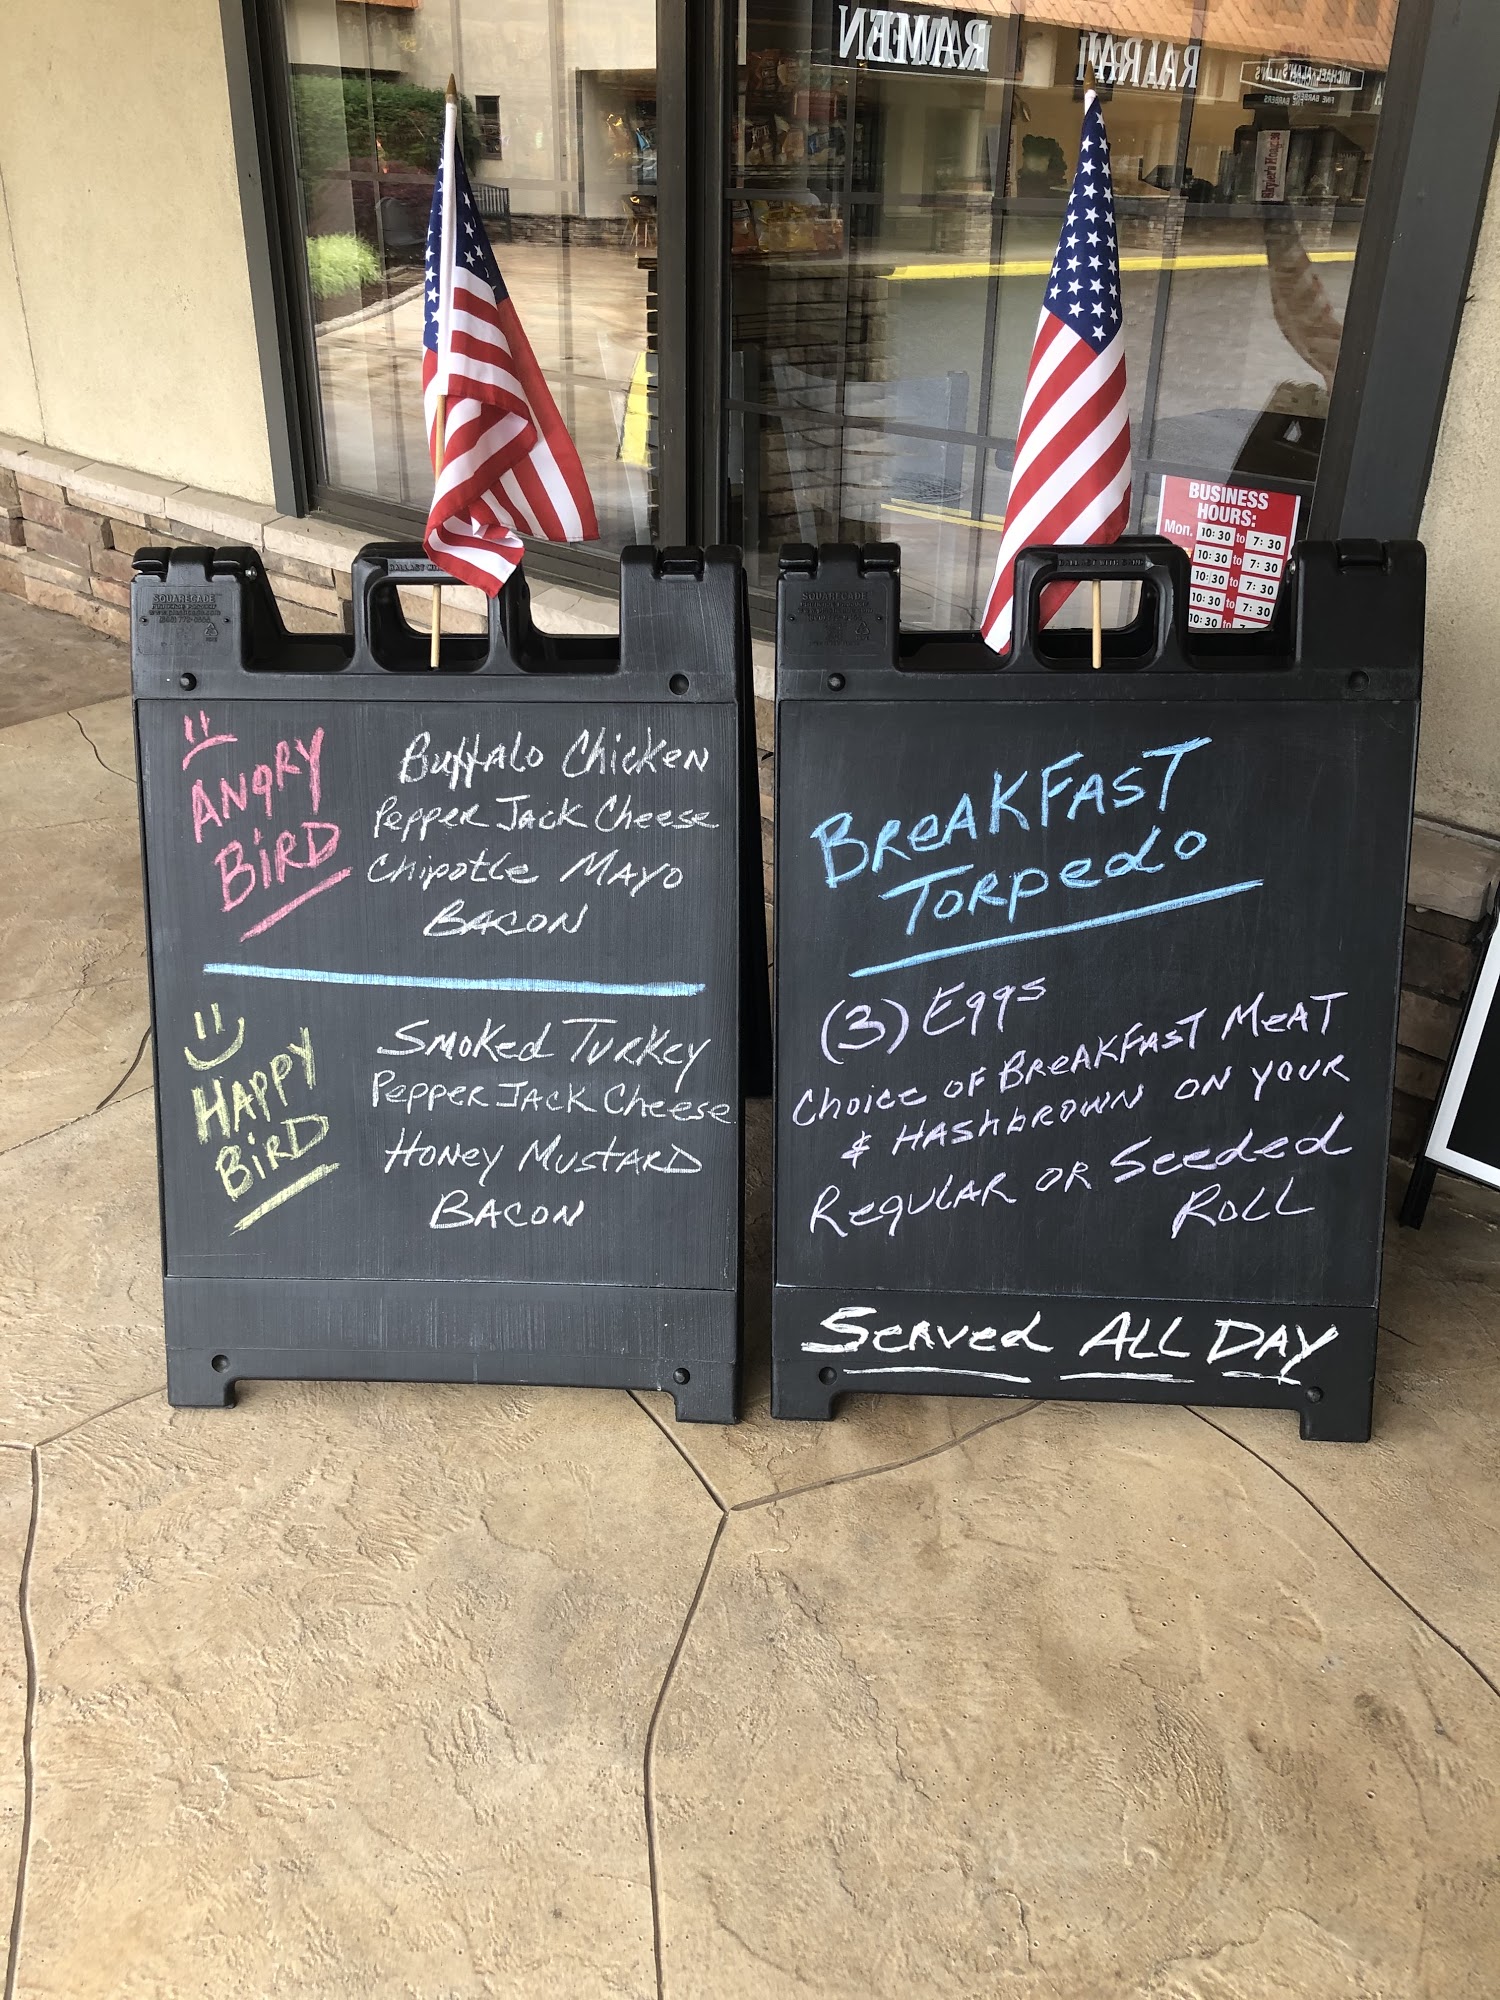 RAMEN
RAIRAI
MICHAEL ALAN'S
FINE BARBERS
BUSINESS
HOURS:
Mon. 10:30 to 7:30
10:30 to 7:30
10:30 to 7:30
10:30 to 7:30
10:30 to 7
SQUARECADE
ANGRY
BIRD
Buffalo Chicken
Pepper Jack Cheese
Chipotle Mayo
BACON
HAPPY
BIRD
Smoked Turkey
Pepper Jack Cheese
Honey Mustard
BACON
SQUARECADE
BREAKFAST
TORPEDO
(3) Eggs
Choice of Breakfast Meat
& Hashbrown on your
Regular or Seeded
Roll
Served ALL DAY